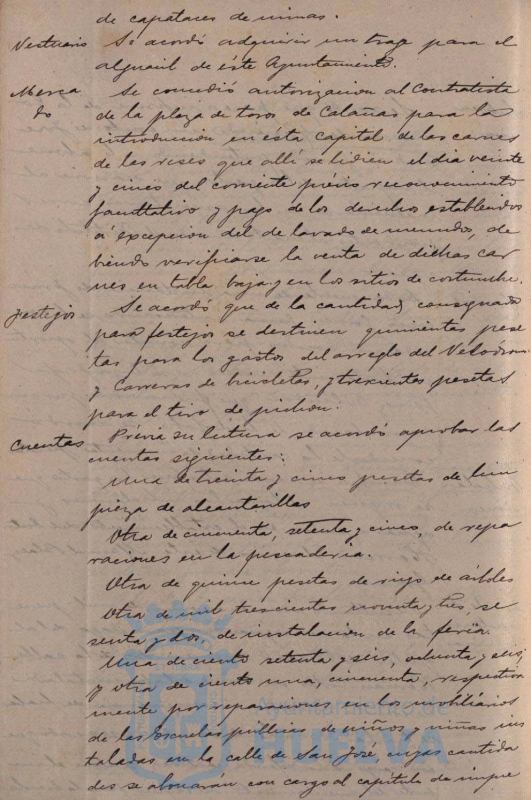 de capataces de minas.
Vestuario Se acordó adquirir un traje para el
alguacil de éste Ayuntamiento.
Merca Se concedió autorizacion al Contratista
do de la plaza de toros de Calañas para la
introduccion en esta Capital de las carnes
de las reses que allí se lidien el dia veinte
y cinco del corriente prévio reconocimiento
facultativo y pago de los derechos establecidos
á excepcion del de lavado de menudos, de
biendo verificarse la venta de dichas car
nes en tabla baja y en los sitios de costumbre.
Festejos Se acordó que de la cantidad consignada
para festejos se destinen quinientas pese
tas para los gastos del arreglo del Velódromo
y Carreras de bicicletas, y trescientas pesetas
para el tiro de pichon.
Cuentas Prévia su lectura se acordó aprobar las
cuentas siguientes:
Una de treinta y cinco pesetas de lim
pieza de alcantarillas
Otra de cincuenta, setenta y cinco, de repa
raciones en la pescaderia.
Otra de quince pesetas de riego de árboles
Otra de mil trescientas noventa y tres, se
senta y dos, de instalacion de la feria.
Una de ciento setenta y seis, ochenta y seis,
y otra de ciento una, cincuenta, respectiva
mente por reparaciones en los mobiliarios
de las escuelas públicas de niños y niñas ins
taladas en la calle de San José, cuyas cantida
des se abonarán con cargo al capitulo de impre
Ayuntamiento de
HUELVA